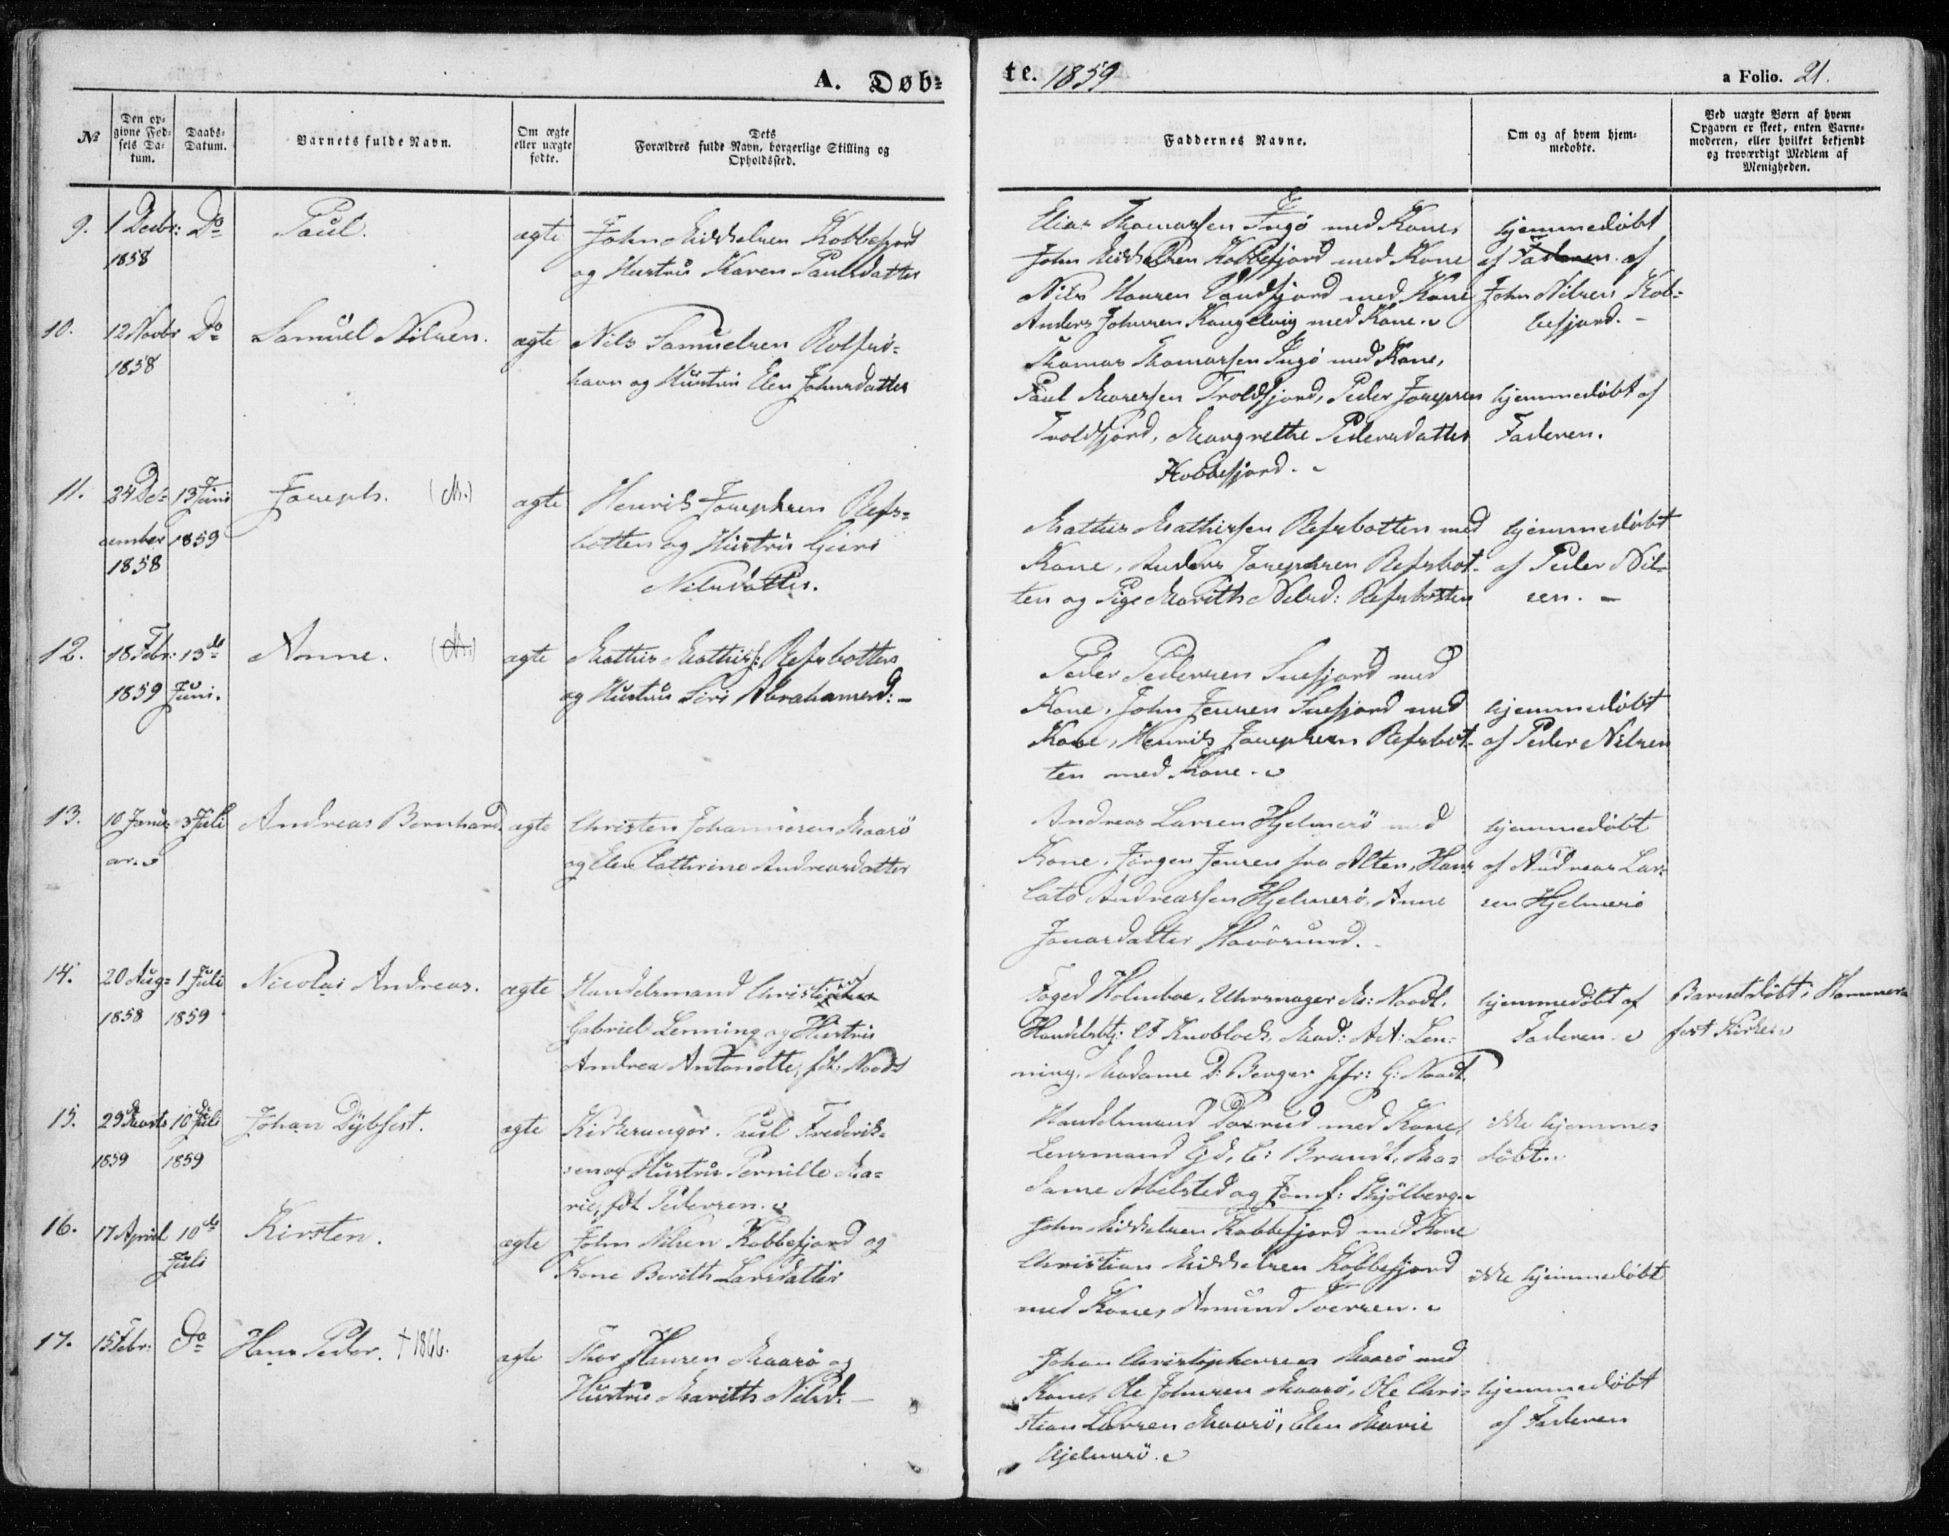 A. Døb=
te. 1859
a Folio. 21.
№
Den op-
givne Fød-
sels Da-
tum.
Daabs-
Datum.
Barnets fulde Navn.
Om ægte
eller uægte
fødte.
Dets
Forældres fulde Navn, borgerlige Stilling og
Opholdssted.
Faddernes Navne.
Om og af hvem hjem-
medøbte.
Ved uægte Børn af hvem
Opgaven er skeet, enten Barne-
moderen, eller hvilket bekjendt
og troværdigt Medlem af
Menigheden.
9. 1 Decbr: Do Paul. ægte John Mikkelsen Kobbefjord
1858 og Hustru Karen Paulsdatter
Elias Thomassen Ingø med Kone,
John Mikkelsen Kobbefjord med Kone
Nils Hansen Vandfjord med Kone
Anders Johnsen Kongelvig med Kone.
hjemmedøbt
af Faderen. af
John Nilsen Kob=
befjord.
10. 12 Novbr Do Samuel Nilsen. ægte Nils Samuelsen Rolfsø-
1858 havn og Hustru Elen Johnsdatter
Thomas Thomassen Ingø med Kone,
Paul Troldfjord, Peder Josepsen
Troldfjord, Margrethe Pedersdatter
Kobbefjord.
hjemmedøbt af
Faderen.
11. 24 De- 13 Juni Joseph. ægte Henrik Josephsen Refs=
cember 1859 botten og Hustru
1858 Nilsdatter.
Mathis Mathissen Refsbotten med
Kone, Anders Josephsen Refsbot-
ten og Pige Marith Nilsd: Refsbotten
hjemmedøbt
af Peder Nil-
sen.
12. 18 Febr: 13de Anne. ægte Mathis Mathiss: Refsbotten
1859 Juni. og Hustru Siri Abrahamsd:
Peder Pedersen Snefjord med
Kone, John Jensen Snefjord med
Kone, Henrik Josephsen Refsbot-
ten med Kone.
hjemmedøbt
af Peder Nilsen
13. 10 Janu- 3 Juli Andreas Bernhard. ægte Christen Johannesen Maasø
ar. og Elen Cathrine Andreasdatter
Andreas Larsen Hjelmsø med
Kone, Jørgen Jensen fra Alten, Hans
Cato Andreassen Hjelmsø, Anne
Jonasdatter Havøsund.
hjemmedøbt
af Andreas Lar-
sen Hjelmsø
14. 20 Aug= 1 Juli Nicolai Andreas. ægte Handelsmand
1858 1859 Gabriel Lenning og Hustru
Andrea Antonette, fdt: Noodt
Foged Holmboe, Uhrmager M: Noodt,
Knobloch, Mad: A A: Len-
ning, Madame D: Berger Jfr: G: Noodt.
hjemmedøbt af
Faderen.
Barnet døbt i Hammer=
fest Kirke.
15. 29 Marts 10de Juli Johan Dybfest. ægte Kirkesanger Paul Frederik-
1859 1859 sen og Hustru Pernille Ma-
rie, fdt Pedersen.
Handelsmand med Kone,
Lensmand C: Brandt, Ma-
dame Abelsted og Jomf: Skjølberg.
ikke hjemme-
døbt.
16. 17 April 10de Kirsten. ægte John Nilsen Kobbefjord og
Juli Kone Berith Larsdatter
John Mikkelsen Kobbefjord med Kone
Christian Mikkelsen Kobbefjord
med Kone, Amund Iversen.
ikke hjemmedøbt
17. 15 Febr: Do Hans Peder. †1866. ægte Thor Hansen Maasø og
Hustru Marith Nilsd:
Johan Christophersen Maasø med
Kone, Ole Johnsen Maasø, Ole Chri-
stian Larsen Maasø, Elen Marie
Hjelmsø.
hjemmedøbt
af Faderen